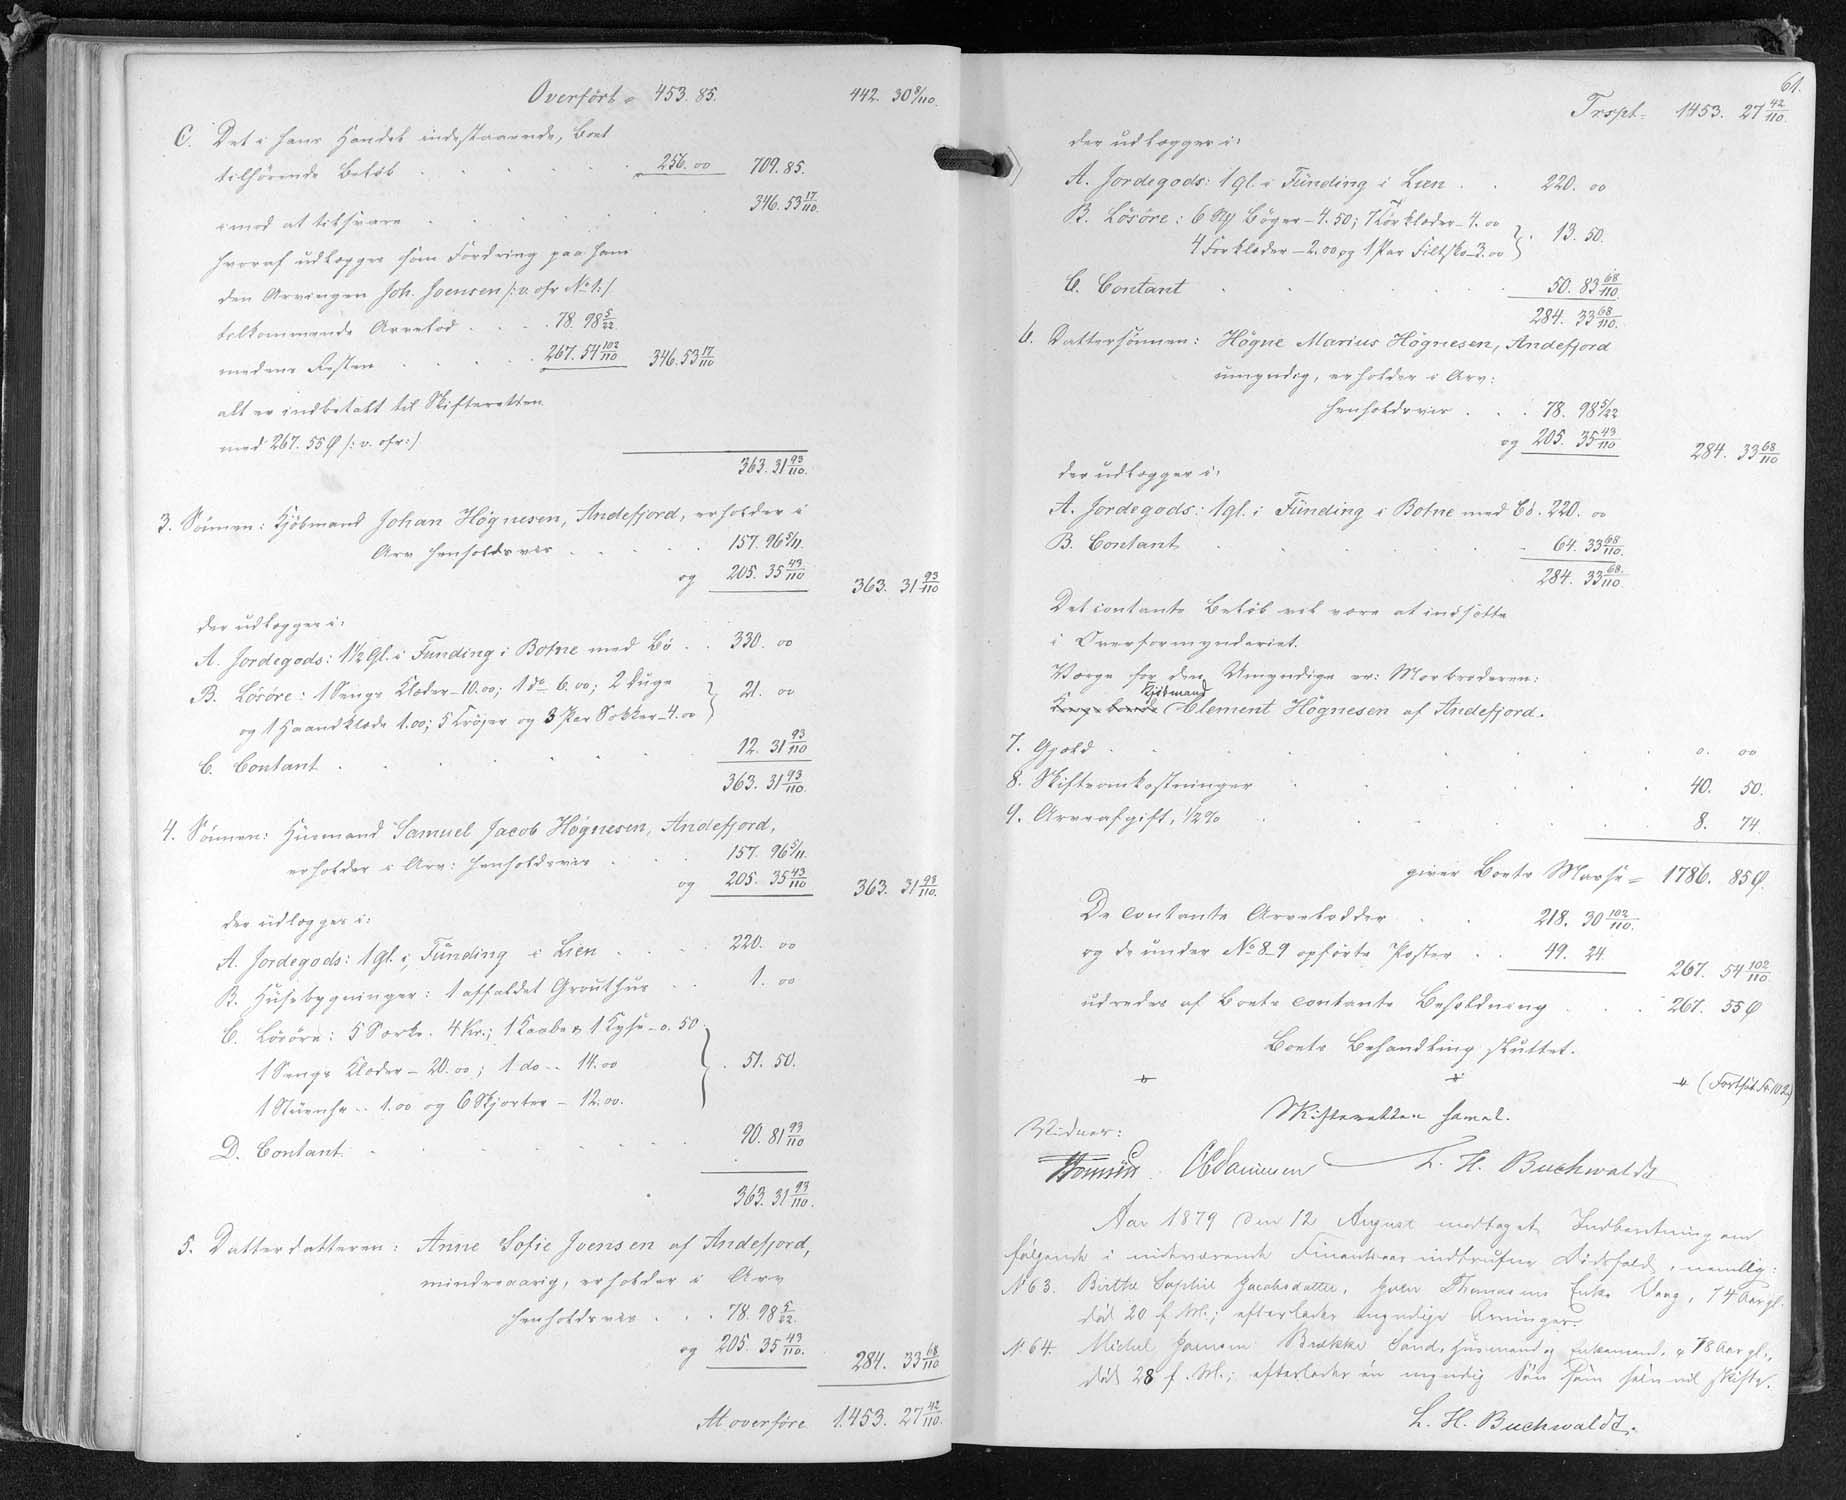 Overført = 453. 85. 442. 30 8/110.
C. Det i hans Handel indestaaende, Boet
tilhørende Beløb . . . . . 256. 00 709. 85.
imod at tilsvare . . . . . . 346. 53 17/110.
hvoraf udlægges som Fordring paa ham
den Arvingen Joh. Joensen /: v. ofr No 1:/
tilkommende Arvelod . . . 78. 98 5/22.
medens Resten . . . . 267. 54 102/110 346. 53 17/110
alt er indbetalt til Skifteretten
med 267. 55 Ø /: v. ofr:/
363. 31 93/110.
3. Sønnen: Kjøbmand Johan Høgnesen, Andefjord, erholder i
Arv henholdsvis . . . . 157. 96 5/11.
og 205. 35 43/110 363. 31 93/110
der udlægges i:
A. Jordegods: 1 1/2 Gl. i Funding i Botne med Bø . . 330. 00
B. Løsøre: 1 Sengs Klæder - 10. 00; 1 do 6. 00; 2 Duge
og 1 Haandklæde 1. 00; 5 Trøjer og 3 Par Sokker - 4. 00 } 21. 00
C. Contant . . . . . . 12. 31 93/110
363. 31 93/110.
4. Sønnen: Husmand Samuel Jacob Høgnesen, Andefjord,
erholder i Arv: henholdsvis . . . 157. 96 5/11.
og 205. 35 43/110 363. 31 93/110.
der udlægges i:
A. Jordegods: 1 gl. i Funding i Lien . . . 220. 00
B. Husebygninger: 1 affaldet Grouthus . . 1. 00
C. Løsøre: 5 Særke. 4 Kr.; 1 Kaabe & 1 Kyse - 0. 50
1 Sengs Klæder - 20. 00; 1 do - 14. 00 } . 51. 50.
1 - 1. 00 og 6 Skjorter - 12. 00.
D. Contant . . . . . . 90. 81 93/110
363. 31 93/110.
5. Datterdatteren: Anne Sofie Joensen af Andefjord,
mindreaarig, erholder i Arv
henholdsvis . . . 78. 98 5/22.
og 205. 35 43/110. 284. 33 68/110
At overføre 1453. 27 42/110.
61.
Trspt. 1453. 27 42/110.
der udlægges i:
A. Jordegods: 1 gl. i Funding i Lien . . 220. 00
B. Løsøre: 6 Bøger - 4. 50; 7 Tørklæder - 4. 00
4 Forklæder - 2. 00 og 1 Par Filtsko - 3. 00 } . 13. 50.
C. Contant . . . . . 50. 83 68/110
284. 33 68/110.
6. Dattersønnen: Högne Marius Högnesen, Andefjord
umyndig, erholder i Arv:
henholdsvis . . . 78. 98 5/22
og 205. 35 43/110 284. 33 68/110
der udlægges i:
A. Jordegods: 1 gl. i Funding i Botne med Bø . 220. 00
B. Contant . . . . . 64. 33 68/110.
284. 33 68/110.
Det contante Beløb vil være at indsætte
i Overformynderiet.
Værge for den Umyndige er: Morbroderen:
Kjøbmand
Clement Högnesen af Andefjord.
7. Gjæld . . . . . . 0. 00
8. Skifteomkostninger . . . . . 40. 50.
9. Arveafgift, 1/2 % . . . . . 8. 74.
giver Boets Masse = 1786. 85 Ø.
De contante Arvelodder . . 218. 30 102/110.
og de under No 8-9 opførte Poster . . 49. 24. 267. 54 102/110.
udredes af Boets contante Beholdning . . . 267. 55 Ø
Boets Behandling sluttet.
(Fortsat Fo 102)
Skifteretten hævet.
Vidner:
L. H. Buchwaldt
Aar 1879 den 12 August modtaget Indberetning om
følgende i nærværende Finantsaar indtrufne Dødsfald, nemlig:
No 63. Birthe Sophie Jacobsdatter, Joen Thomasens Enke Vaag, 74 Aar gl.
død 20 f. M.; efterlader myndige Arvinger.
No 64. Michel Joensen Brekke Sand, Husmand og Enkemand, 78 Aar gl.,
død 28 f. M.; efterlader én myndig Søn som selv vil skifte.
L. H. Buchwaldt.